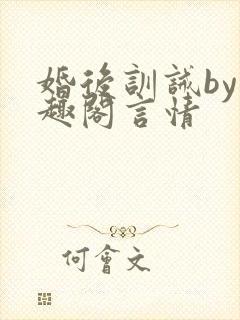 婚後訓誡by
趣閣言情
何會文